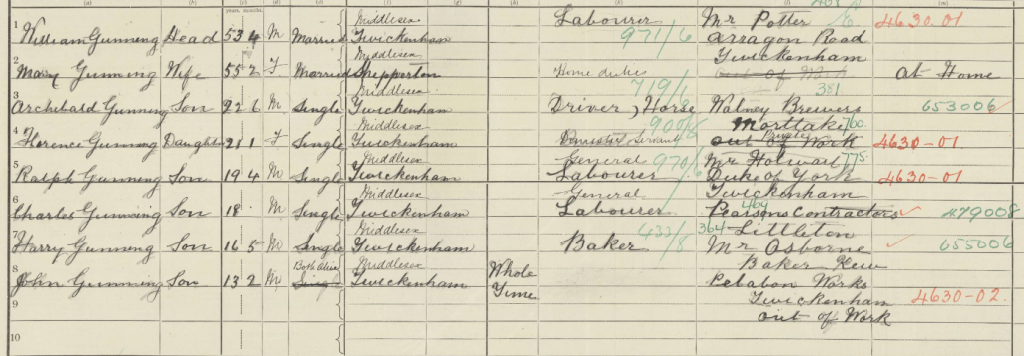 Middlesex Labourer Mr Potter 4630-01
1 William Gunning Head 53 4 M Married Twickenham 971/6 Arragon Road
Middlesex Twickenham
2 Mary Gunning Wife 55 2 F Married Shepperton Home duties out of Work At Home
Middlesex 719/6 381
3 Archibald Gunning Son 22 6 M Single Twickenham Driver, Horse Watney Brewers 653006
Middlesex 900/6 Mortlake 760
4 Florence Gunning Daughter 21 1 F Single Twickenham Domestic Servant Private out of Work 4630-01
Middlesex General 970/6 Mr 775
5 Ralph Gunning Son 19 4 M Single Twickenham Labourer Duke of York 4630-01
Middlesex General Twickenham
6 Charles Gunning Son 18 M Single Twickenham Labourer 469 Pearsons Contractors 479008
Middlesex 433/8 364 Littleton
7 Harry Gunning Son 16 5 M Single Twickenham Baker Mr Osborne 655006
Both Alive Middlesex Whole Baker Kew
8 John Gunning Son 13 2 M Single Twickenham Time Pelabon Works
9 Twickenham 4630-02
out of Work
10